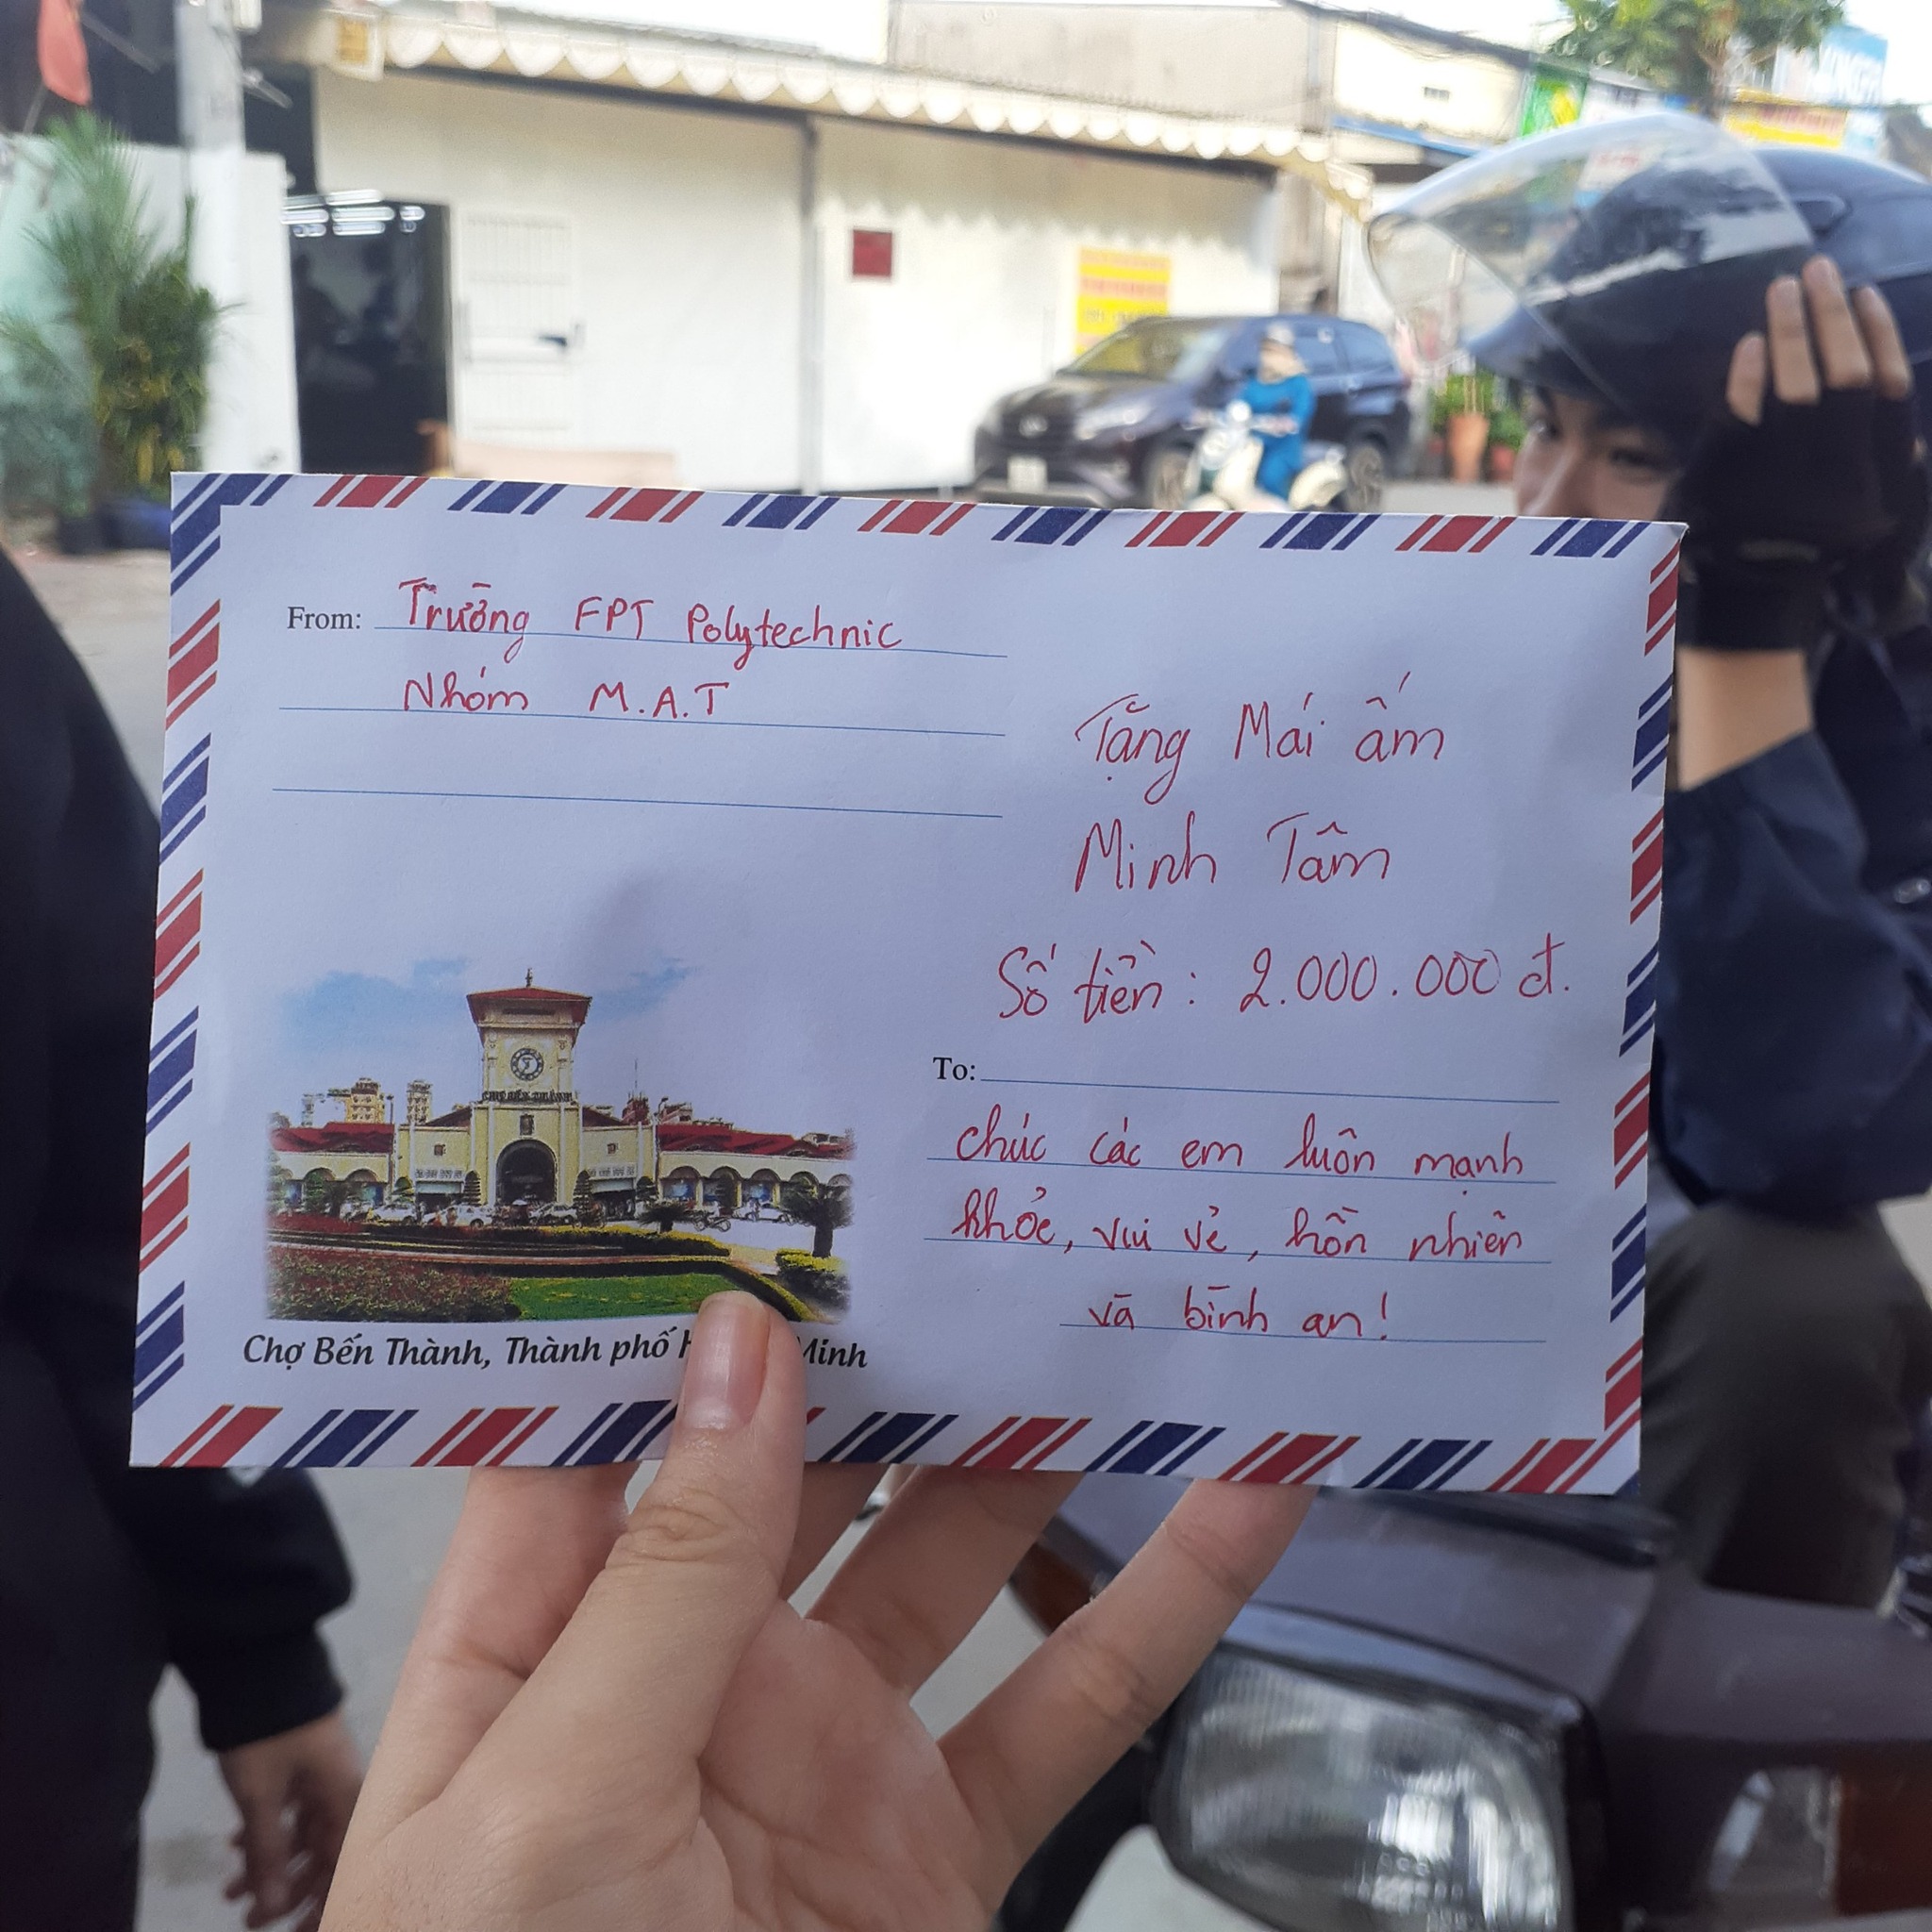 From: Trường FPT Polytechnic
Nhóm M.A.T
Tặng Mái ấm
Minh Tâm
Số tiền: 2.000.000 đ.
To:
chúc các em luôn mạnh
khỏe, vui vẻ, hồn nhiên
và bình an!
CHỢ BẾN THÀNH
Chợ Bến Thành, Thành phố H Minh